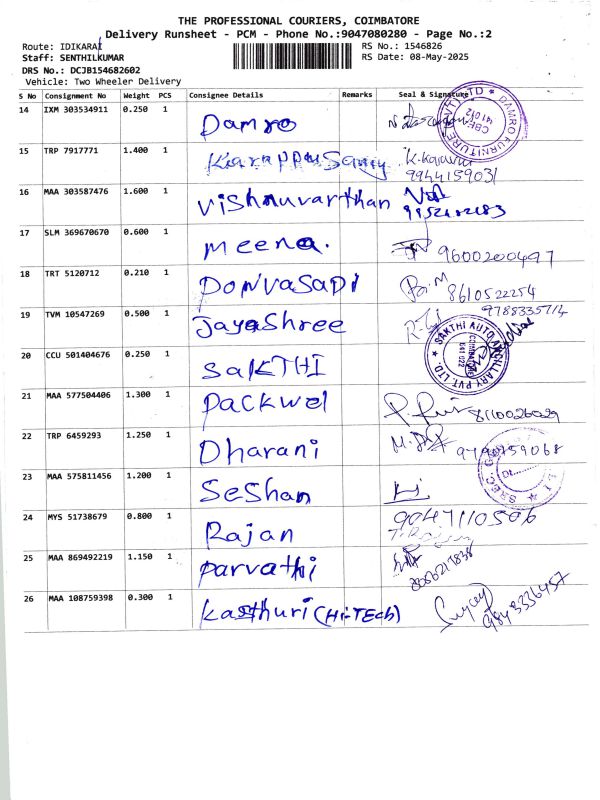 THE PROFESSIONAL COURIERS, COIMBATORE
Delivery Runsheet - PCM - Phone No.:9047080280 - Page No.:2
Route: IDIKARAI
RS No.: 1546826
Staff: SENTHILKUMAR
RS Date: 08-May-2025
DRS No.: DCJB154682602
Vehicle: Two Wheeler Delivery
S No Consignment No Weight PCS Consignee Details Remarks Seal & Signature
14 IXM 303534911 0.250 1 Damro
DAMRO FURNITURE
641 072
15 TRP 7917771 1.400 1 Karappusamy
9944159031
16 MAA 303587476 1.600 1 Vishnuvarthan
17 SLM 369670670 0.600 1 meena. 9600200497
18 TRT 5120712 0.210 1 Ponvasapi 8610522254
19 TVM 10547269 0.500 1 Jayashree 9788335714
20 CCU 501404676 0.250 1 SaKTHI
SAKTHI AUTO ANCILLARY PVT LTD.
COIMBATORE
641 022
21 MAA 577504406 1.300 1 Packwel 8110026029
22 TRP 6459293 1.250 1 Dharani 9790759068
23 MAA 575811456 1.200 1 Seshan
SREC
24 MYS 51738679 0.800 1 Rajan 9047110506
25 MAA 869492219 1.150 1 parvathi
26 MAA 108759398 0.300 1 kasthuri (Hi-TEch) 9843336457